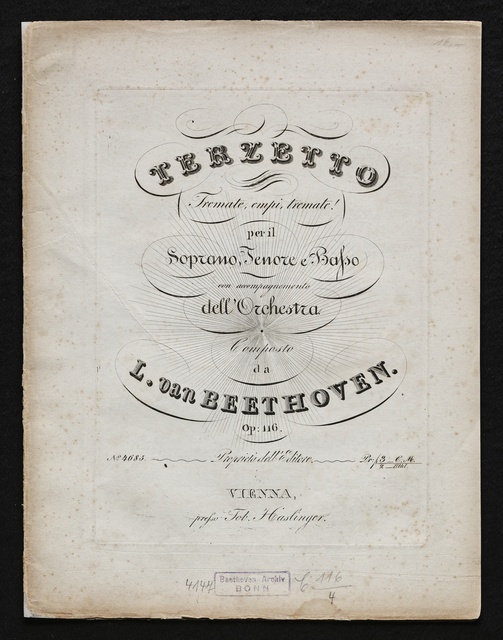 TERZETTO
(Tremate, empi, tremate!)
per il
Soprano, Tenore e Basso
con accompagnemento
dell'Orchestra.
Composto
da
L. van BEETHOVEN.
Op: 116.
No. 4685. Proprietà dell' Editore. Pr.
VIENNA,
presso Tob. Haslinger.
4147 Beethoven-Archiv C 116
BONN 4